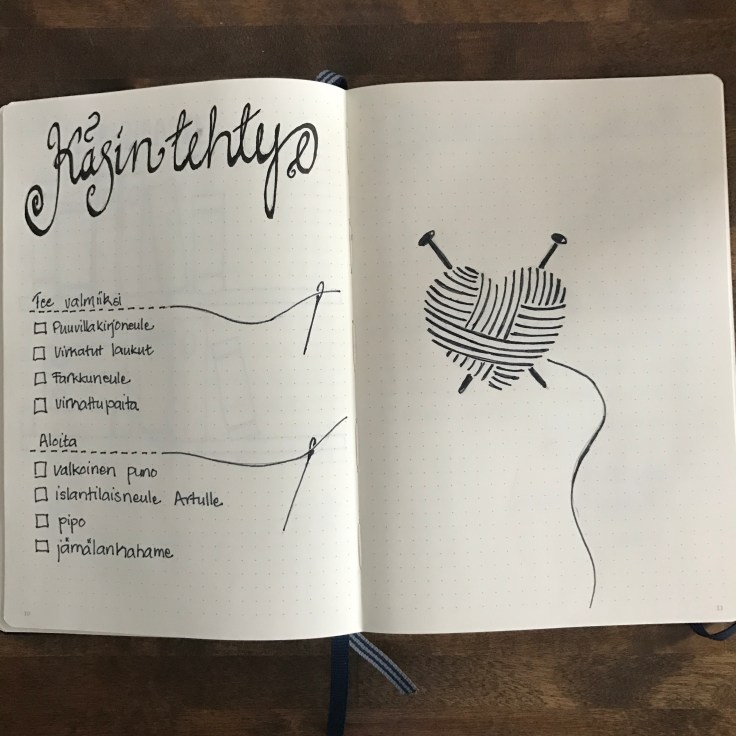 Käsintehty
Tee valmiiksi
Puuvillakirjoneule
Virkatut laukut
Farkkuneule
virkattupaita
Aloita
valkoinen puno
islantilaisneule Artulle
pipo
jämälankahame